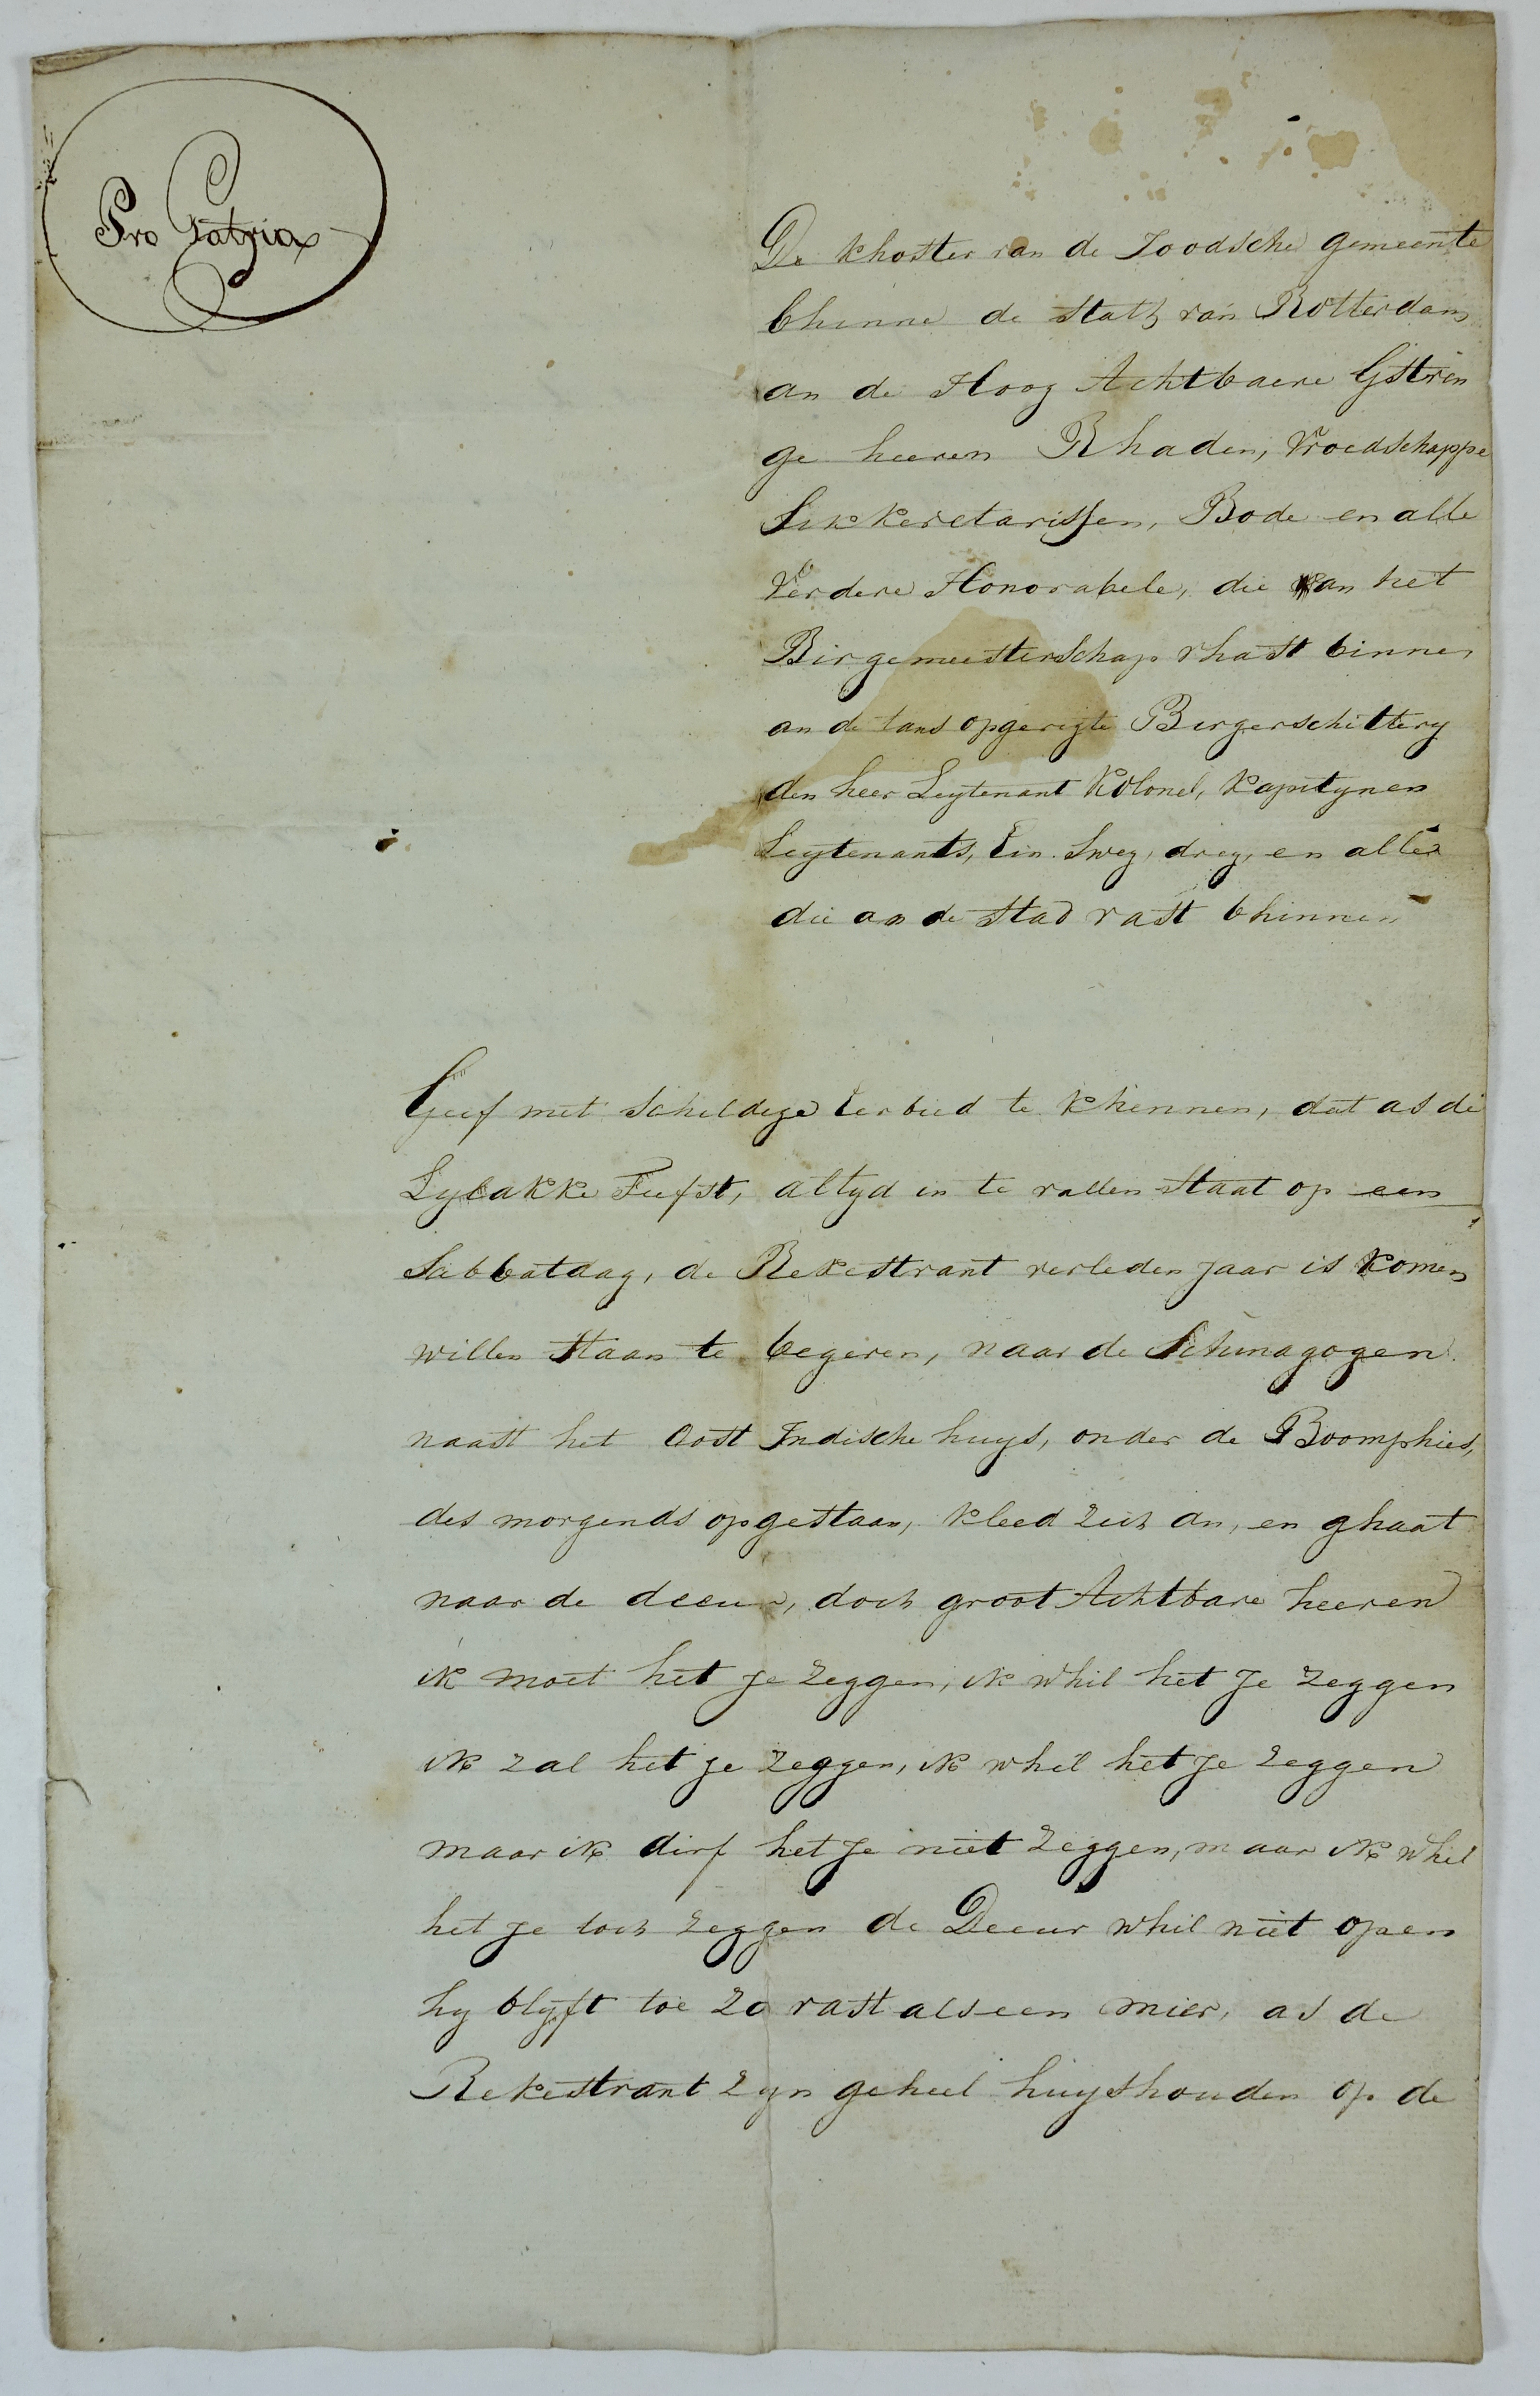 Pro Patria
De khoster van de Joodsche gemeente
bhinne de Statt van Rotterdam
an de Hoog Achtbaere Gstren
ge heeren Rhaden, Vroedschappe
Sikkeretarissen, Bode en alle
Verdere Honorabele, die an het
Birgemeesterschap vhast binne,
an de tans opgerigte Birgerschittery
den heer Leytenant Kolonel, Kapitynen
Leytenants, Ein. Swey, drey, en alles
die an de Stad vast bhinnen
Geef met schildige Eerbied te khennen, dat as de
Lylakke Feefst, altyd in te vallen staat op een
Sabbatdag, de Rekestrant verleden jaar is komen
willen staan te begeren, naar de Schunagogen
naast het Oost Indische huys, onder de Boomphies,
des morgends opgestaan, kleed zich an, en ghaat
naar de deeur, doch groot Achtbare heeren
ik moet het je zeggen, ik whil het Je zeggen
ik zal het je zeggen, ik whil het Je zeggen
maar ik dirf het Je niet zeggen, maar ik whil
het je toch zeggen de Deeur whil niet open
hy blyft toe zo vast als een mier, as de
Rekestrant zyn geheel huyshouden op de